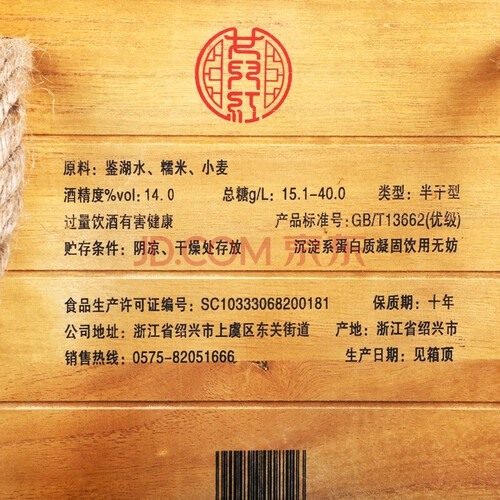 女兒紅
原料：鉴湖水、糯米、小麦
酒精度%vol: 14.0 总糖g/L: 15.1-40.0 类型：半干型
过量饮酒有害健康 产品标准号：GB/T13662(优级)
贮存条件：阴凉、干燥处存放 沉淀系蛋白质凝固饮用无妨
JD.COM 京东
食品生产许可证编号：SC10333068200181 保质期：十年
公司地址：浙江省绍兴市上虞区东关街道 产地：浙江省绍兴市
销售热线：0575-82051666 生产日期：见箱顶